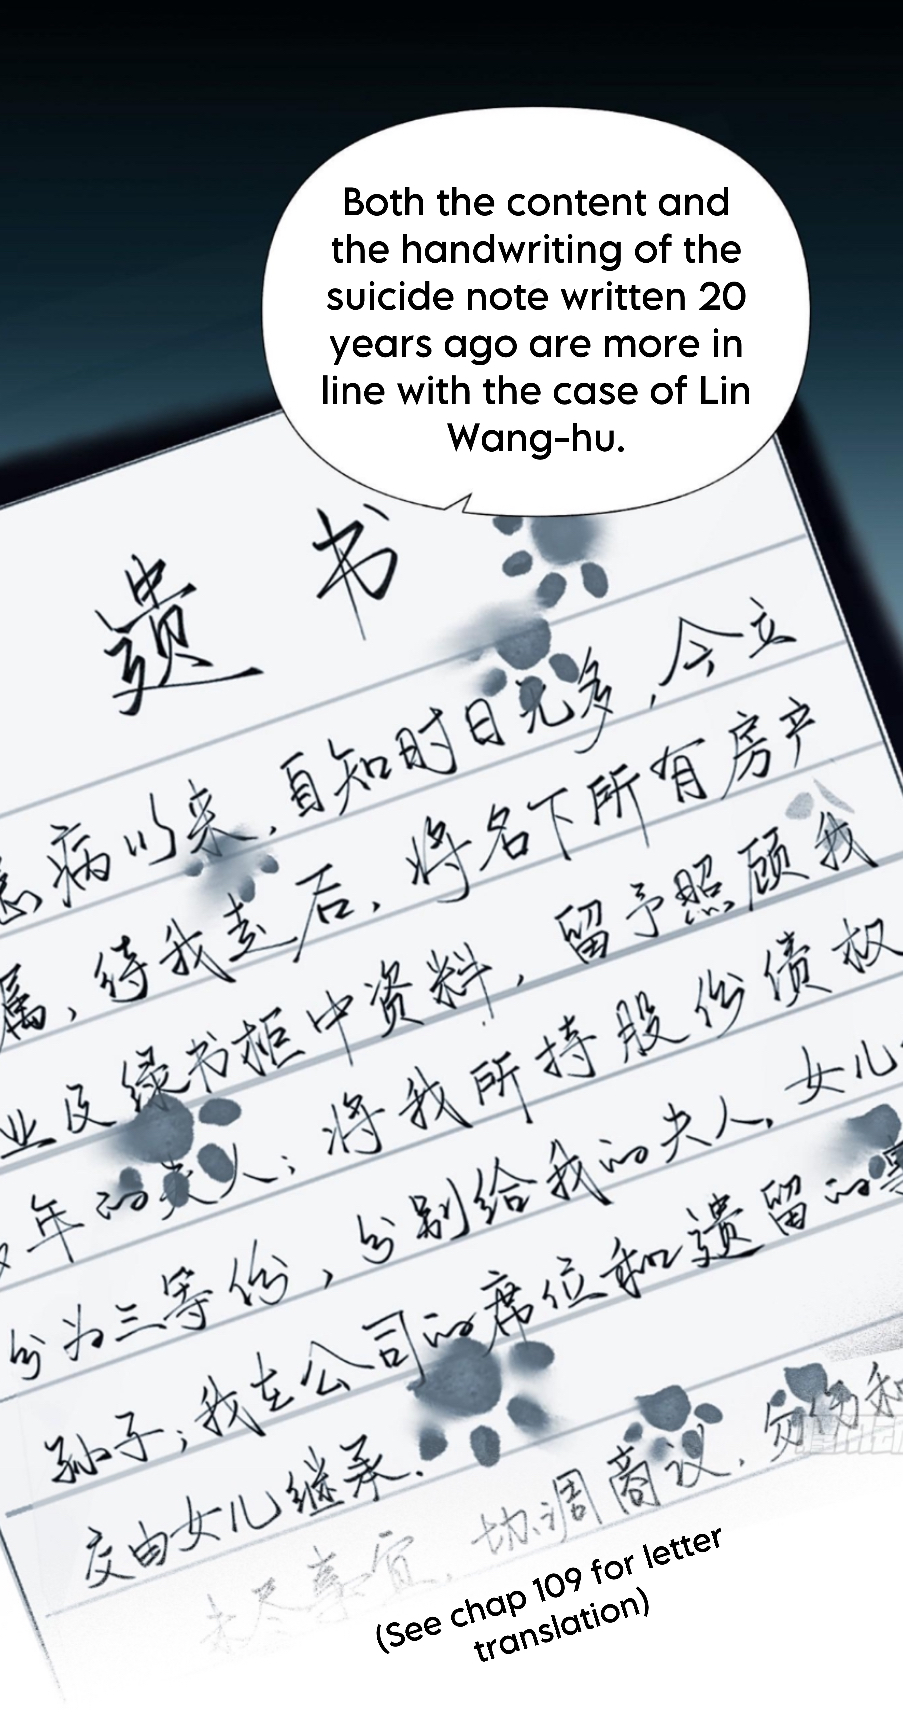 Both the content and
the handwriting of the
suicide note written 20
years ago are more in
line with the case of Lin
Wang-hu.
遗书
病以来，自知时日无多，今立
属，待我走后，将名下所有房产
业及绿书柜中资料，留予照顾我
年的夫人；将我所持股份债权
分为三等份，分别给我的夫人、女儿
孙子；我在公司的席位和遗留的事
交由女儿继承。
未尽事宜，协调商议，勿伤和
(See chap 109 for letter
translation)